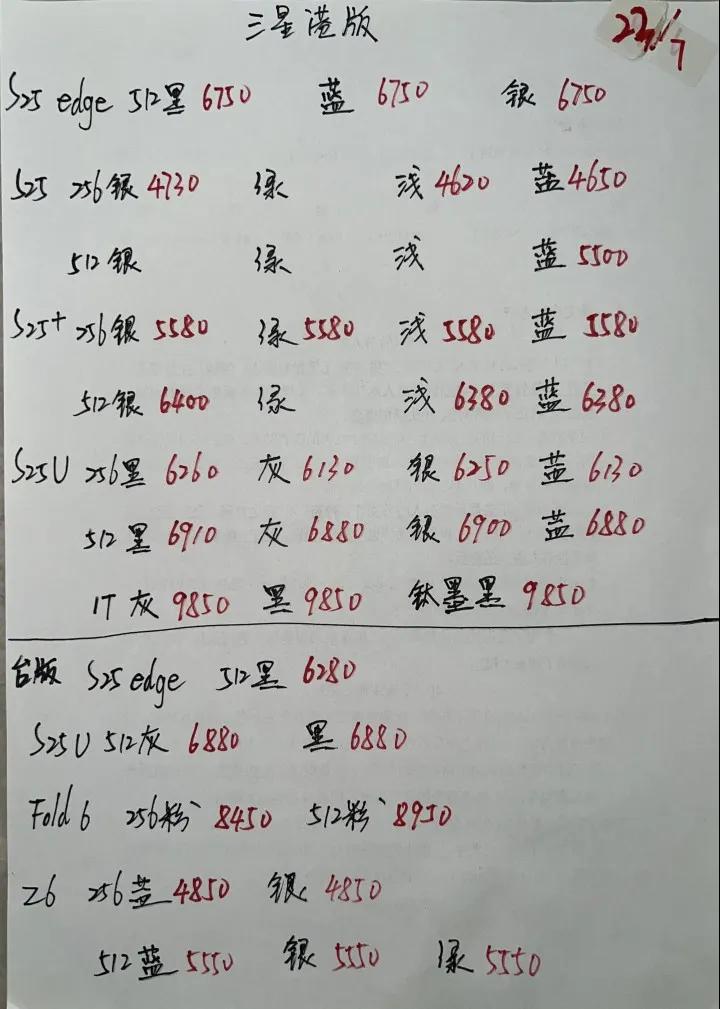 三星港版 22/7
S25 edge 512黑 6750 蓝 6750 银 6750
S25 256银 4730 绿 浅 4620 蓝 4650
512银 绿 浅 蓝 5500
S25+ 256银 5580 绿 5580 浅 5580 蓝 5580
512银 6400 绿 浅 6380 蓝 6380
S25U 256黑 6260 灰 6130 银 6250 蓝 6130
512黑 6910 灰 6880 银 6900 蓝 6880
1T 灰 9850 黑 9850 钛墨黑 9850
台版 S25 edge 512黑 6280
S25U 512灰 6880 黑 6880
Fold 6 256粉 8450 512粉 8950
Z6 256蓝 4850 银 4850
512蓝 5550 银 5550 绿 5550